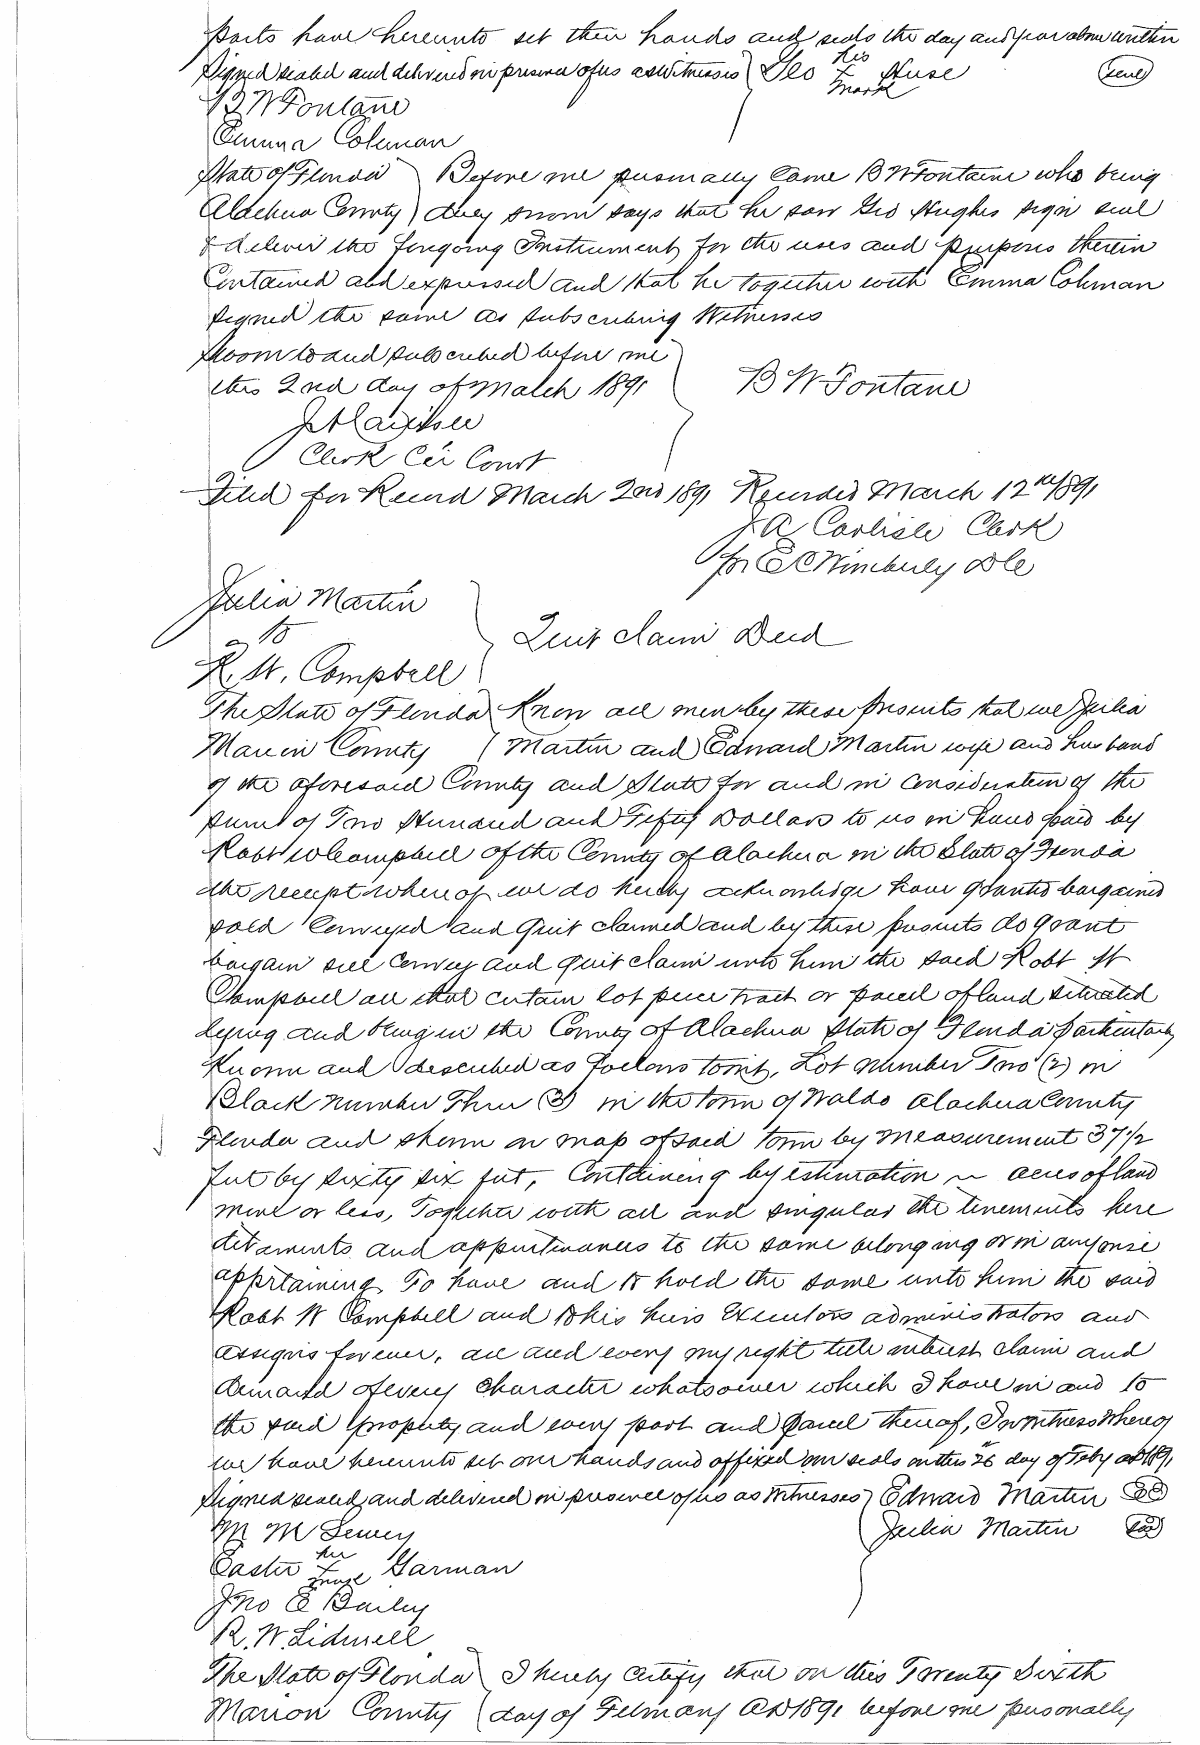 parts have hereunto set their hands and seals the day and year above written
Signed sealed and delivered in presence of us as witnesses Geo his X mark Huse (seal)
B W Fontane
Emma Coleman
State of Florida Before me personally came B W Fontaine who being
Alachua County duly sworn says that he saw Geo Hughes sign seal
& deliver the foregoing Instrument for the uses and purposes therein
Contained and expressed and that he together with Emma Coleman
signed the same as subscribing Witnesses
Sworn to and subscribed before me
this 2nd day of March 1891 B W Fontane
J A Carlisle
Clerk Cir Court
Filed for Record March 2nd 1891 Recorded March 12th 1891
J A Carlisle Clerk
per E C Wimberly D C
Julia Martin
to Quit claim Deed
R. W. Campbell
The State of Florida Know all men by these presents that we Julia
Marion County Martin and Edward Martin wife and husband
of the aforesaid County and State for and in consideration of the
sum of Two Hundred and Fifty Dollars to us in hand paid by
Robt W Campbell of the County of Alachua in the State of Florida
the receipt where of we do hereby acknowledge have granted bargained
sold Conveyed and Quit claimed and by these presents do grant
bargain sell Convey and quit claim unto him the said Robt W
Campbell all that certain lot piece tract or parcel of land situated
lying and being in the County of Alachua State of Florida particularly
Known and described as follows towit, Lot number Two (2) in
Block number Three (3) in the town of Waldo Alachua County
Florida and shown on map of said town by measurement 37 1/2
feet by sixty six feet, Containing by estimation ~ acres of land
more or less, Together with all and singular the tenements here
ditaments and appurtenances to the same belonging or in anywise
appertaining To have and to hold the same unto him the said
Robt W Campbell and to his heirs Executors administrators and
assigns forever, all and every my right title interest claim and
demand of every character whatsoever which I have in and to
the said property and every part and parcel thereof, In witness where of
we have hereunto set our hands and affixed our seals on this 26" day of Feby AD 1891
Signed sealed and delivered in presence of us as witnesses Edward Martin
M M Lewey Julia Martin
Easter her X mark Garman
Jno E Bailey
R. W. Lidwell
The State of Florida I hereby certify that on this Twenty Sixth
Marion County day of February AD 1891 before me personally